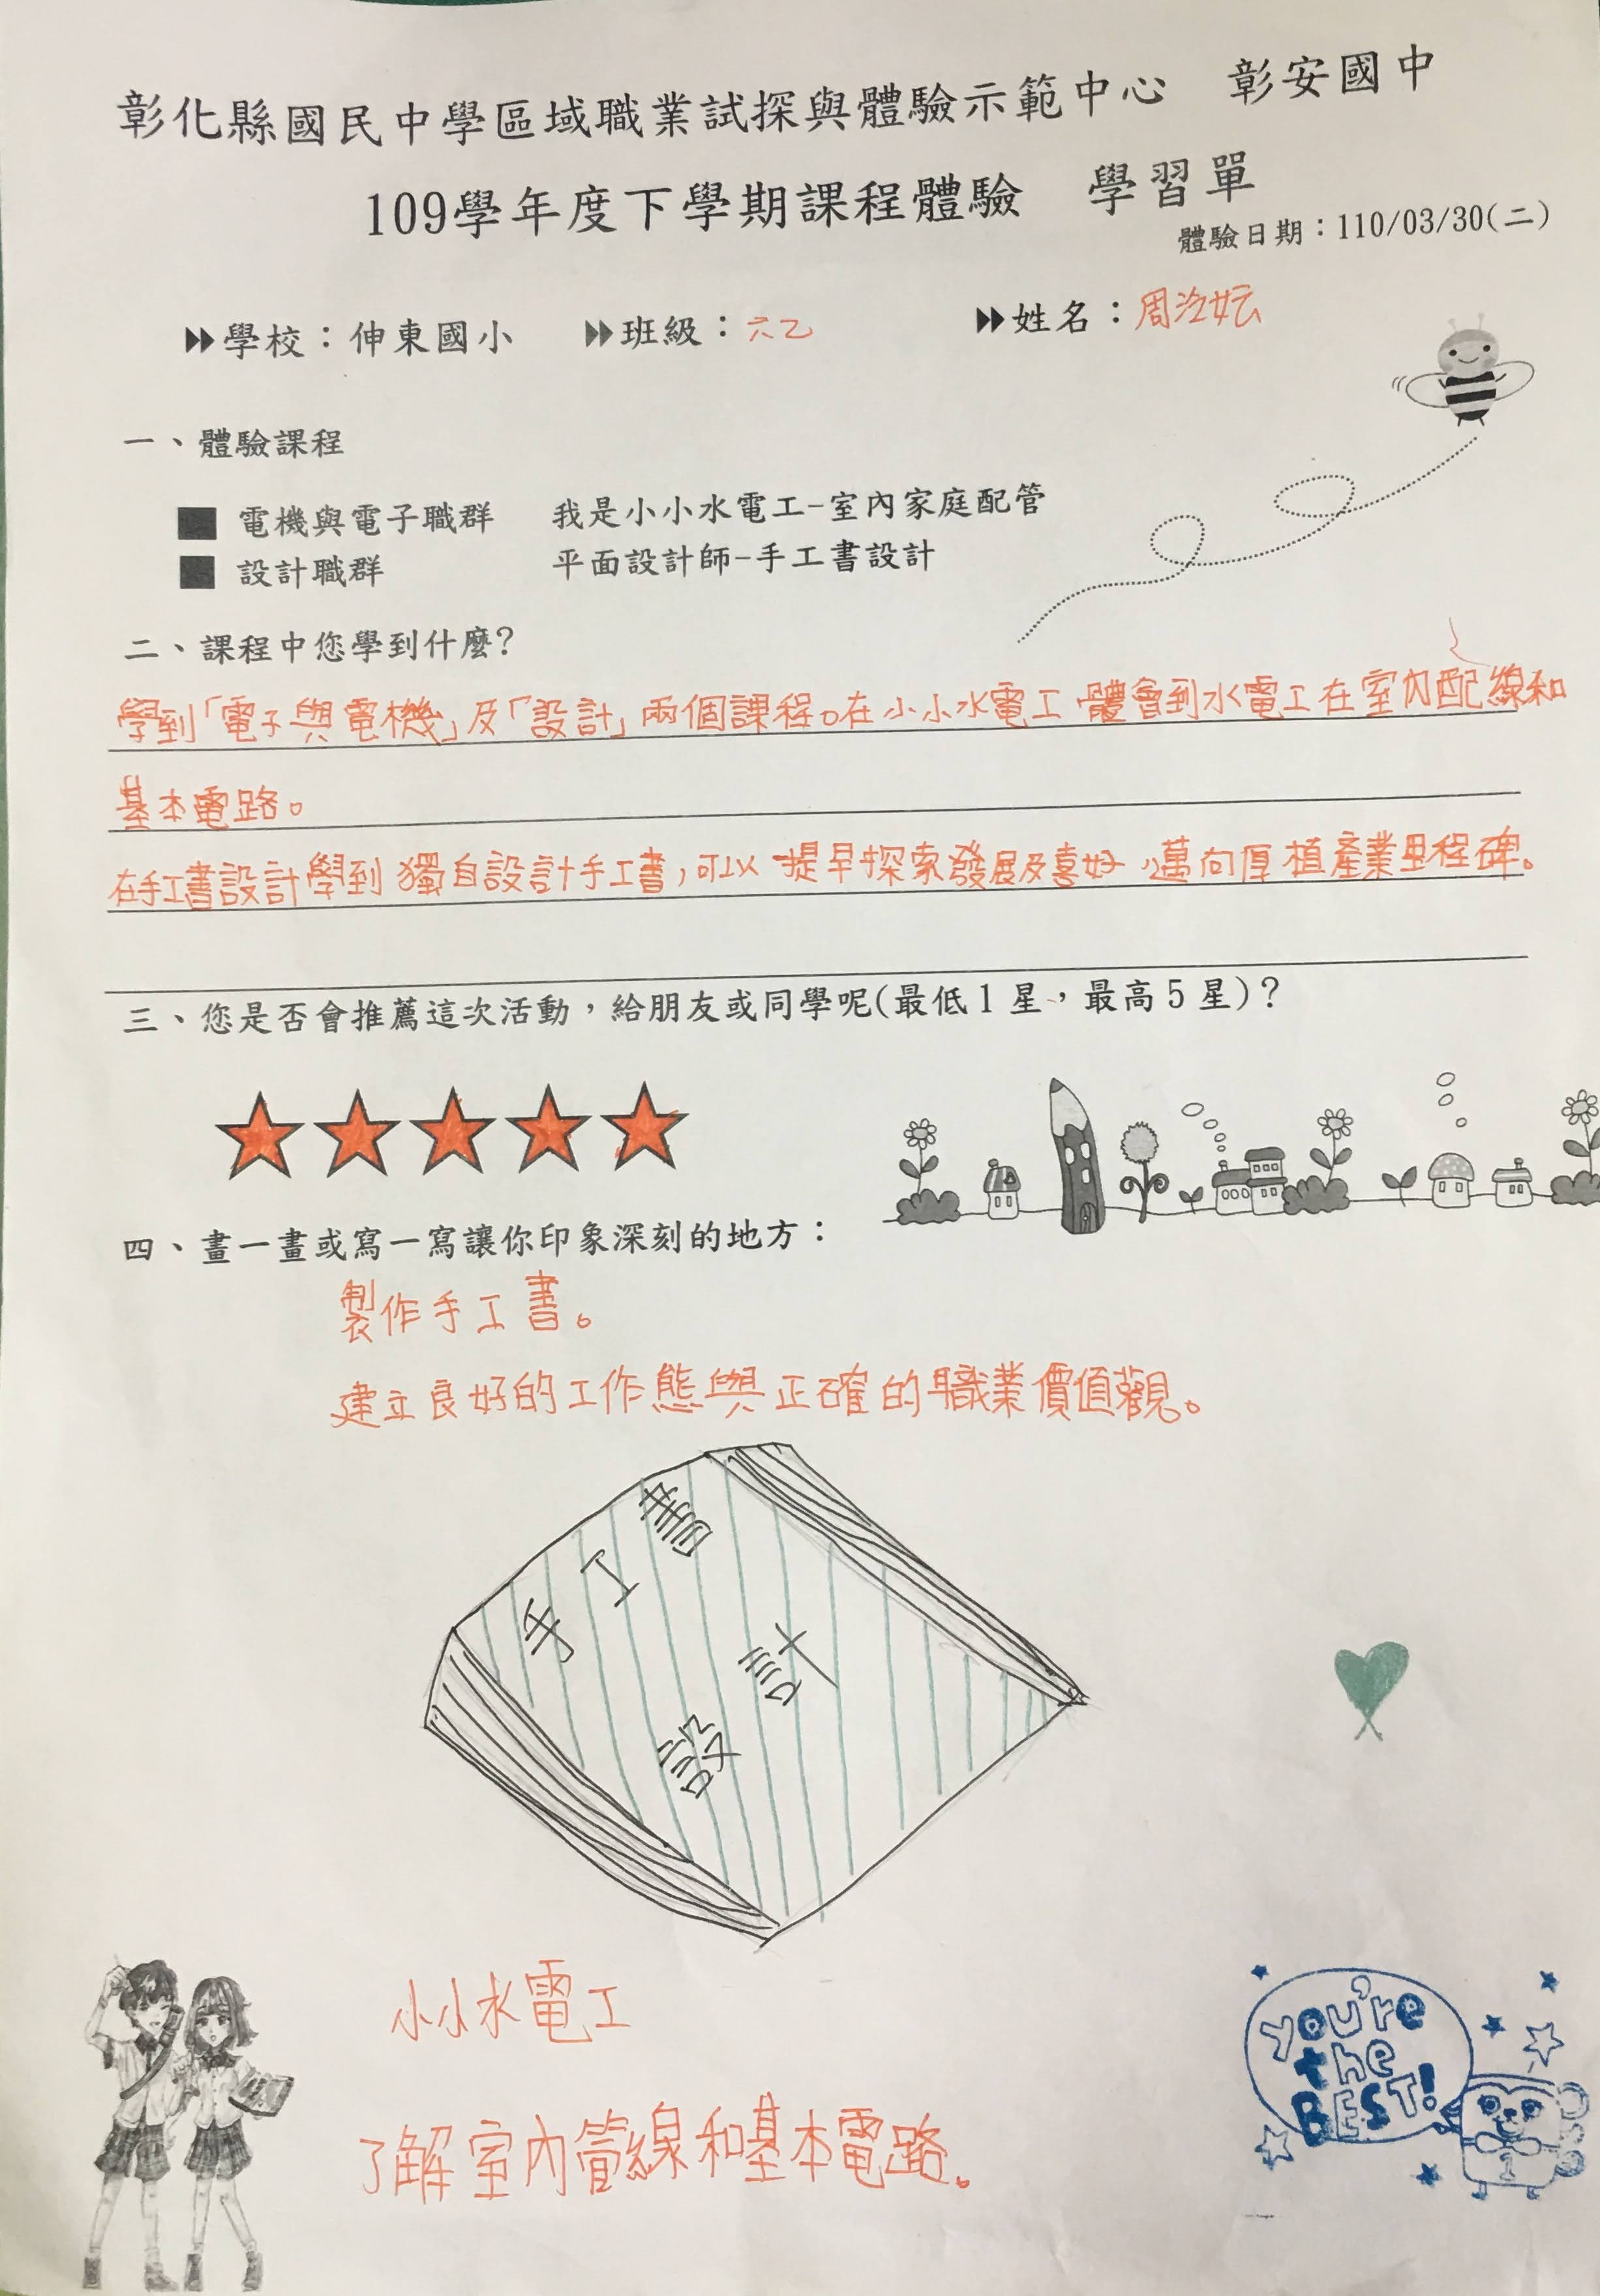 彰化縣國民中學區域職業試探與體驗示範中心 彰安國中
109學年度下學期課程體驗 學習單
體驗日期：110/03/30(二)
學校：伸東國小 班級：六乙 姓名：周汝妘
一、體驗課程
■ 電機與電子職群 我是小小水電工-室內家庭配管
■ 設計職群 平面設計師-手工書設計
二、課程中您學到什麼?
學到「電子與電機」及「設計」兩個課程。在小小水電工 體會到水電工在室內配線和
基本電路。
在手工書設計學到獨自設計手工書,可以提早探索發展及喜好,邁向厚植產業里程碑。
三、您是否會推薦這次活動，給朋友或同學呢(最低1星，最高5星)？
四、畫一畫或寫一寫讓你印象深刻的地方：
製作手工書。
建立良好的工作態與正確的職業價值觀。
手工書
設計
小小水電工
了解室內管線和基本電路。
you're
the
BEST!
1